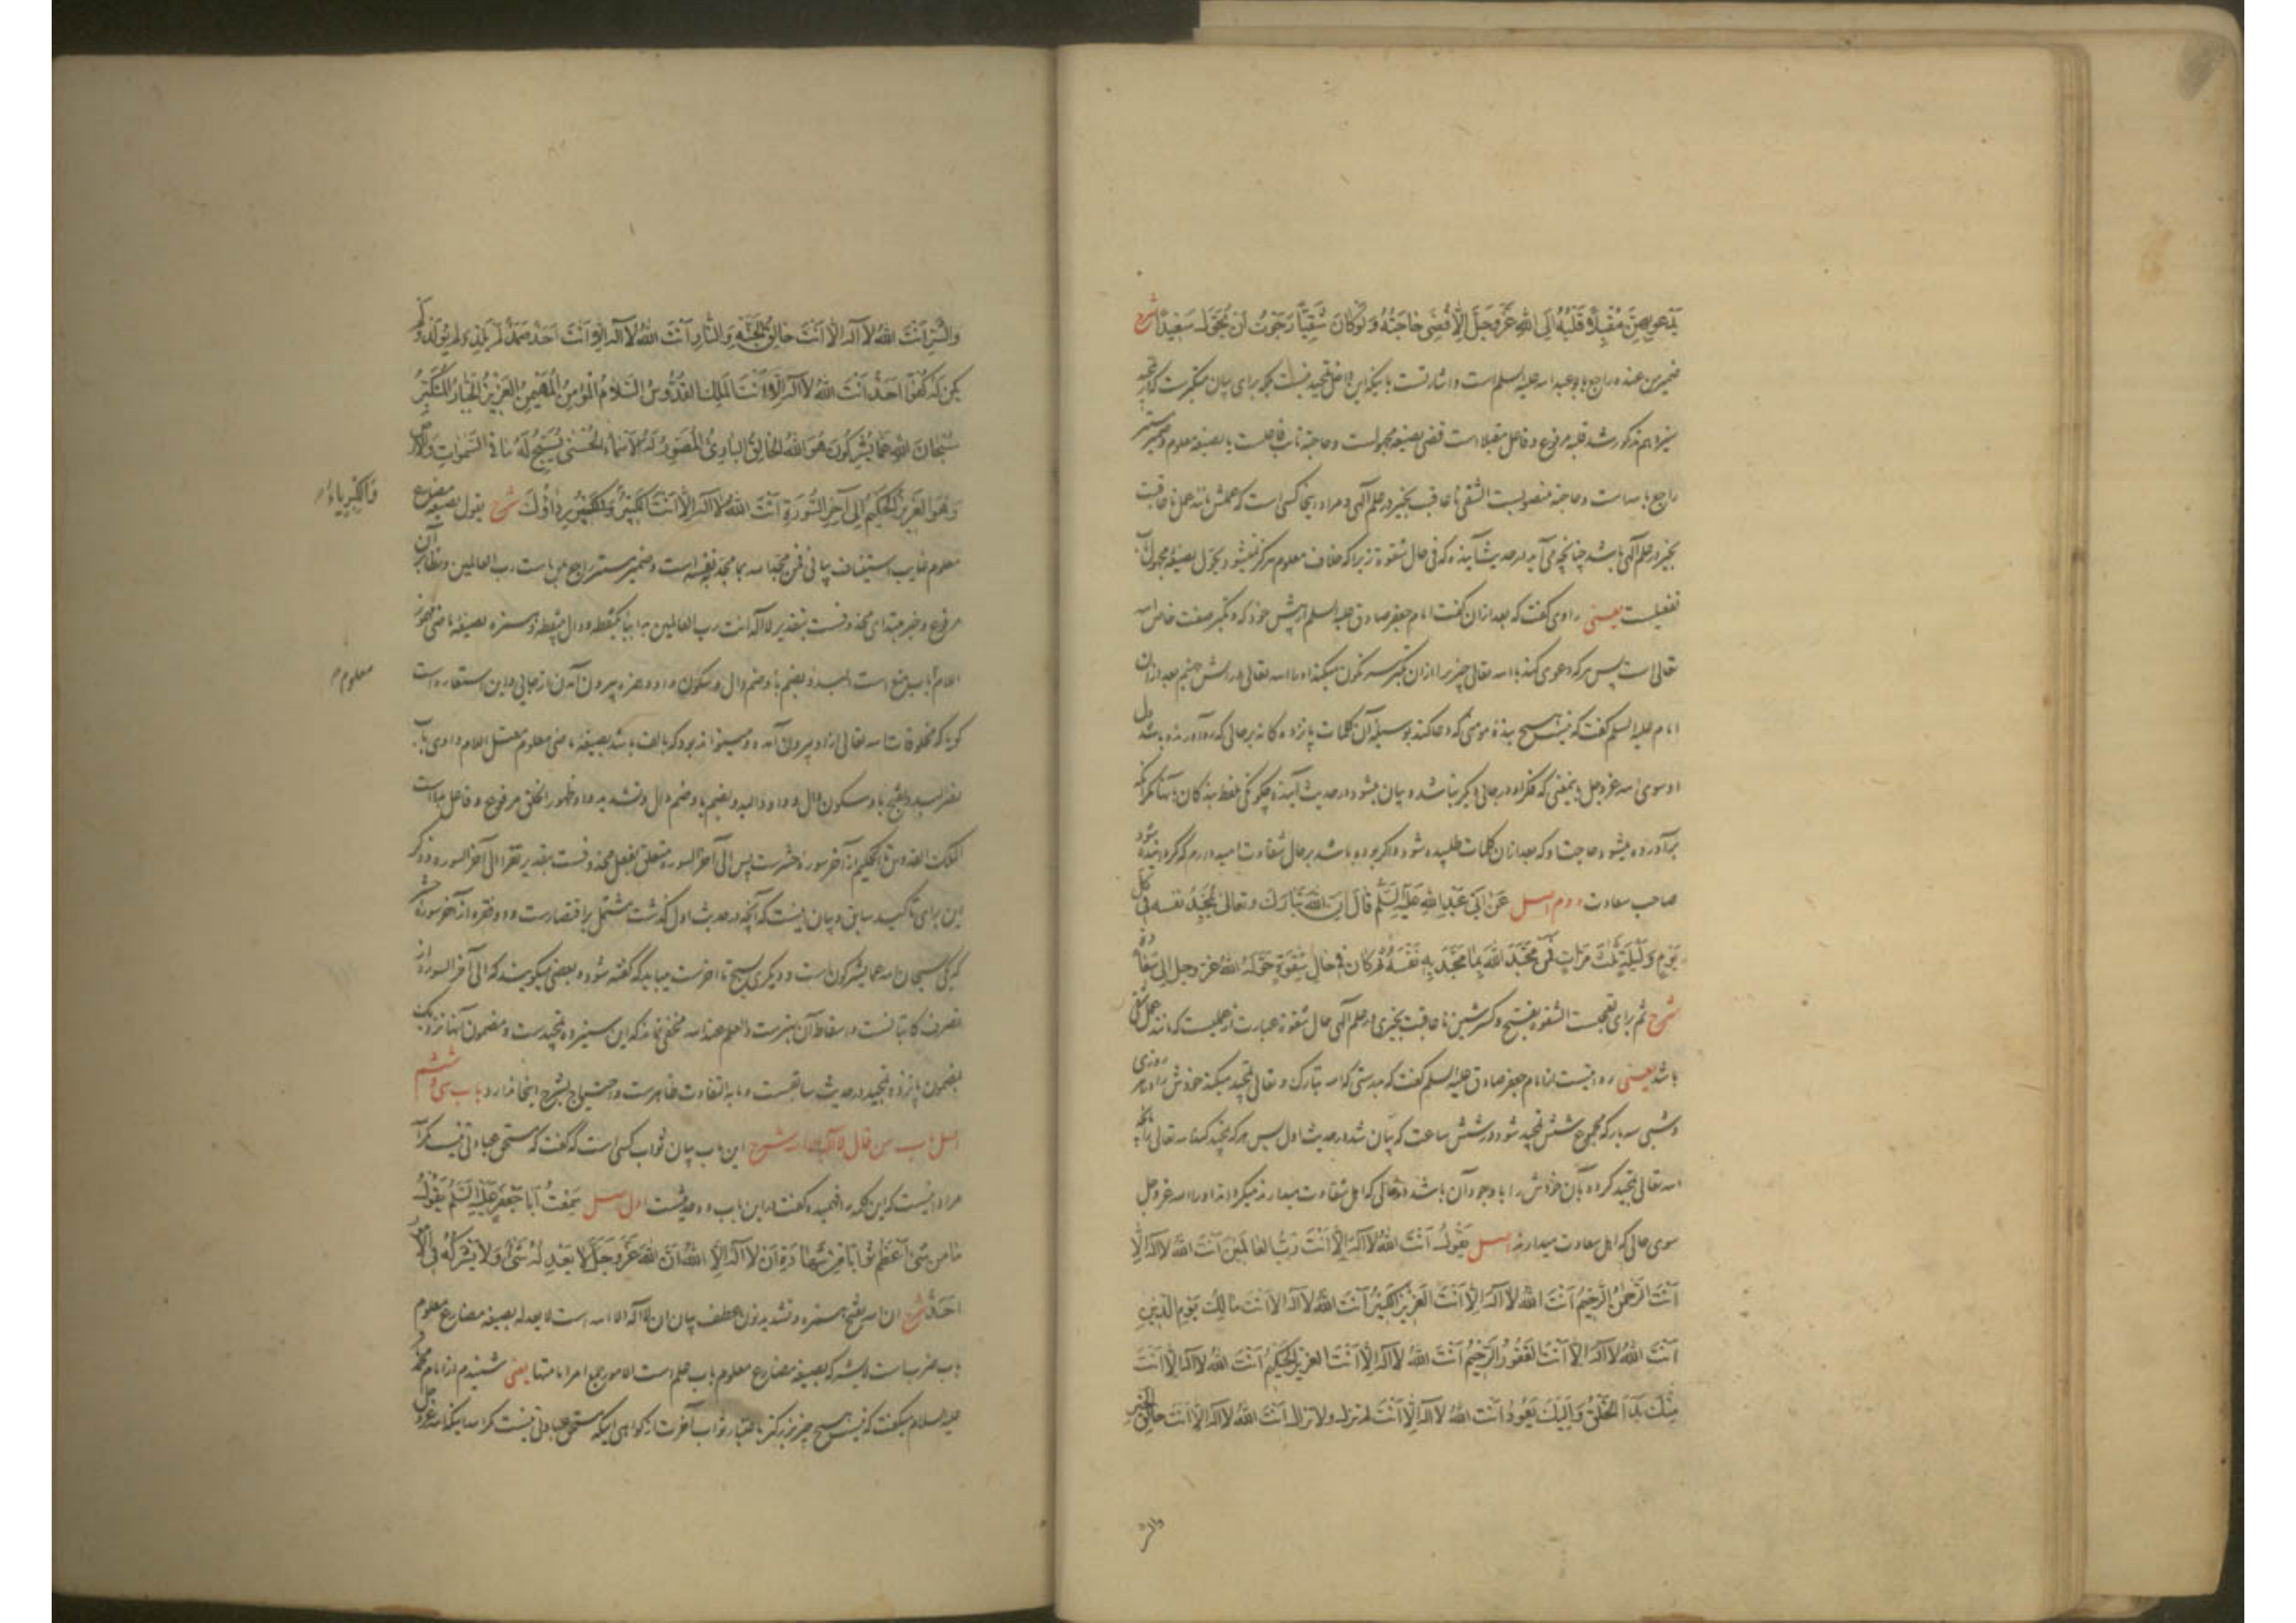 يدعو بهن مقبلا قلبه الى الله عز وجل الا قضى حاجته ولو كان شقيا رجوت ان يحول سعيدا شرح
ضمير من عنده راجع بابو عبد الله عليه السلام است و اشارتست باینکه این داخل تمجید نیست بلکه برای بیان
نیز اهم مذکور شد قلبه مرفوع و فاعل مقبلا است قضی بصیغه مجهولست و حاجته نایب فاعلست یا بصیغه معلوم و ضمیر مستتر
راجع بالله است و حاجته منصوبست الشقی ناعاقبت بخیر در علم الهی و مراد اینجا کسی است که عملش مانند عمل ناعاقبت
بخیر در علم الهی باشد چنانچه می آید در حدیث آینده که فی حال شقوة زیرا که خلاف معلوم هرگز نمیشود یحول بصیغه مجهول باب
تفعیلست یعنی راوی گفت که بعد ازان گفت امام جعفر صادق علیه السلم از پیش خود که و تکبر صفت خاص الله
تعالی است پس هر که دعوی کند با الله تعالی چیزیرا ازان تکبر سرنگون میکند او را الله تعالی در آتش جهنم بعد ازان
امام علیه السلم گفت که نیست هیچ بنده مومنی که دعا کند بوسیله آن کلمات پانزده گانه برحالی که روآورنده باشد دل
او سوی الله عز وجل بمعنی که فکر او در جای دیگر نباشد و بیان میشود در حدیث آینده چگونگی
برآورده میشود حاجت او که بعد ازان کلمات طلبیده شود و اگر بوده باشد برحال شقاوت امید دارم که گردانیده شود
صاحب سعادت دوم اصل عن ابى عبد الله عليه السلم قال ان الله تبارك وتعالى يمجد نفسه فى كل
يوم وليلة ثلث مرات فمن مجد الله بما مجد به نفسه ثم كان فى حال شقوة حوله الله عز وجل الى سعادة
شرح ثم برای تعجبست الشقوة بفتح و کسر شین ناعاقبت بخیری در علم الهی حال شقوة عبارت از عملیست که مانند عمل شقی
باشد یعنی روایتست از امام جعفر صادق علیه السلم گفت که بدرستی که الله تبارک و تعالی تمجید میکند خودش را در هر روزی
و شبی سه بار که مجموع شش تمجید شود در شش ساعت که بیان شد در حدیث اول پس هر که تمجید کند الله تعالی را بآنچه
الله تعالی تمجید کرده بآن خودش را با وجود آن باشد در حالی که اهل شقاوت میدارند میگرداند او را الله عز وجل
سوی حالی که اهل سعادت میدارند اصل يقول انت الله لا اله الا انت رب العالمين انت الله لا اله الا
انت الرحمن الرحيم انت الله لا اله الا انت العزيز الكبير انت الله لا اله الا انت مالك يوم الدين
انت الله لا اله الا انت الغفور الرحيم انت الله لا اله الا انت العزيز الحكيم انت الله لا اله الا انت
منك بدأ الخلق واليك يعود انت الله لا اله الا انت لم تزل ولا تزال انت الله لا اله الا انت خالق الخير
والشر
والشر انت الله لا اله الا انت خالق الجنة والنار انت الله لا اله الا انت احد صمد لم يلد ولم يولد ولم
يكن له كفوا احد انت الله لا اله الا انت الملك القدوس السلام المؤمن المهيمن العزيز الجبار المتكبر
سبحان الله عما يشركون هو الله الخالق البارئ المصور له الاسماء الحسنى يسبح له ما فى السموات والارض
وهو العزيز الحكيم الى آخر السورة انت الله لا اله الا انت الكبير والكبير رداؤك شرح یقول بصیغه مضارع
والكبرياء
معلوم غایب استیناف بیانی فمن مجد الله بما مجد به نفسه است و ضمیر مستتر راجع بمن است رب العالمین و نظایر آن
مرفوع و خبر مبتدای محذوفست بتقدیر لا اله الا انت رب العالمین بدا ببا یکنقطه و دال بینقطه و همزه بصیغه ماضی مهموز
اللام باب منع است البدو بضم با و ضم دال و سکون واو و همزه بیرون آمدن از جایی و این استعاره است
معلوم
گویا که مخلوقات الله تعالی ازو بیرون آمده و میتواند بود که بالف باشد بصیغه ماضی معلوم معتل اللام واوی باب
نصر البدو بفتح با و سکون دال و واو و البدو بضم با و ضم دال و تشدید واو ظهور الخلق مرفوع و فاعل بدا است
الملک القدوس تا الحکیم از آخر سوره حشرست پس الی آخر السورة متعلق بفعل محذوفست بتقدیر تقرا الی آخر السورة و ذکر
این برای تاکید سابق و بیان اینست که آنچه در حدیث اول گذشت مشتمل بر اقتصارست و دو فقره از آخر سوره حشر
که یکی سبحان الله عما یشرکون است و دیگری یسبح تا آخرست میباید که گفته شود و بعضی میگویند که الی آخر السورة از
تصرف کاتبانست و اسقاط آن بهترست و العلم عند الله مخفی نماند که این سیزده تمجیدست و مضمون آنها نزدیک
بمضمون پانزده تمجید در حدیث سابقست و ما به التفاوت ظاهرست و احتیاج بشرح اینجا ندارد باب سی و ششم
اصل باب من قال لا اله الا الله شرح این باب بیان ثواب کسی است که گفت که مستحق عبادتی نیست مگر الله
مراد اینست که این کلمه را فهمیده گفت در این باب دو حدیثست اول اصل سمعت ابا جعفر عليه السلم يقول
ما من شئ اعظم ثوابا من شهادة ان لا اله الا الله ان الله عز وجل لا يعدله شئ ولا يشركه فى الامور
احد شرح ان الله بفتح همزه و تشدید نون عطف بیان ان لا اله الا الله است لا یعدله بصیغه مضارع معلوم
باب ضرب است لا یشرکه بصیغه مضارع معلوم باب علم است الامور جمع امر یعنی شنیدم از امام محمد باقر
علیه السلام میگفت که نیست هیچ چیز بزرگتر باعتبار ثواب آخرت از گواهی اینکه مستحق عبادتی نیست مگر الله اینکه الله عز وجل